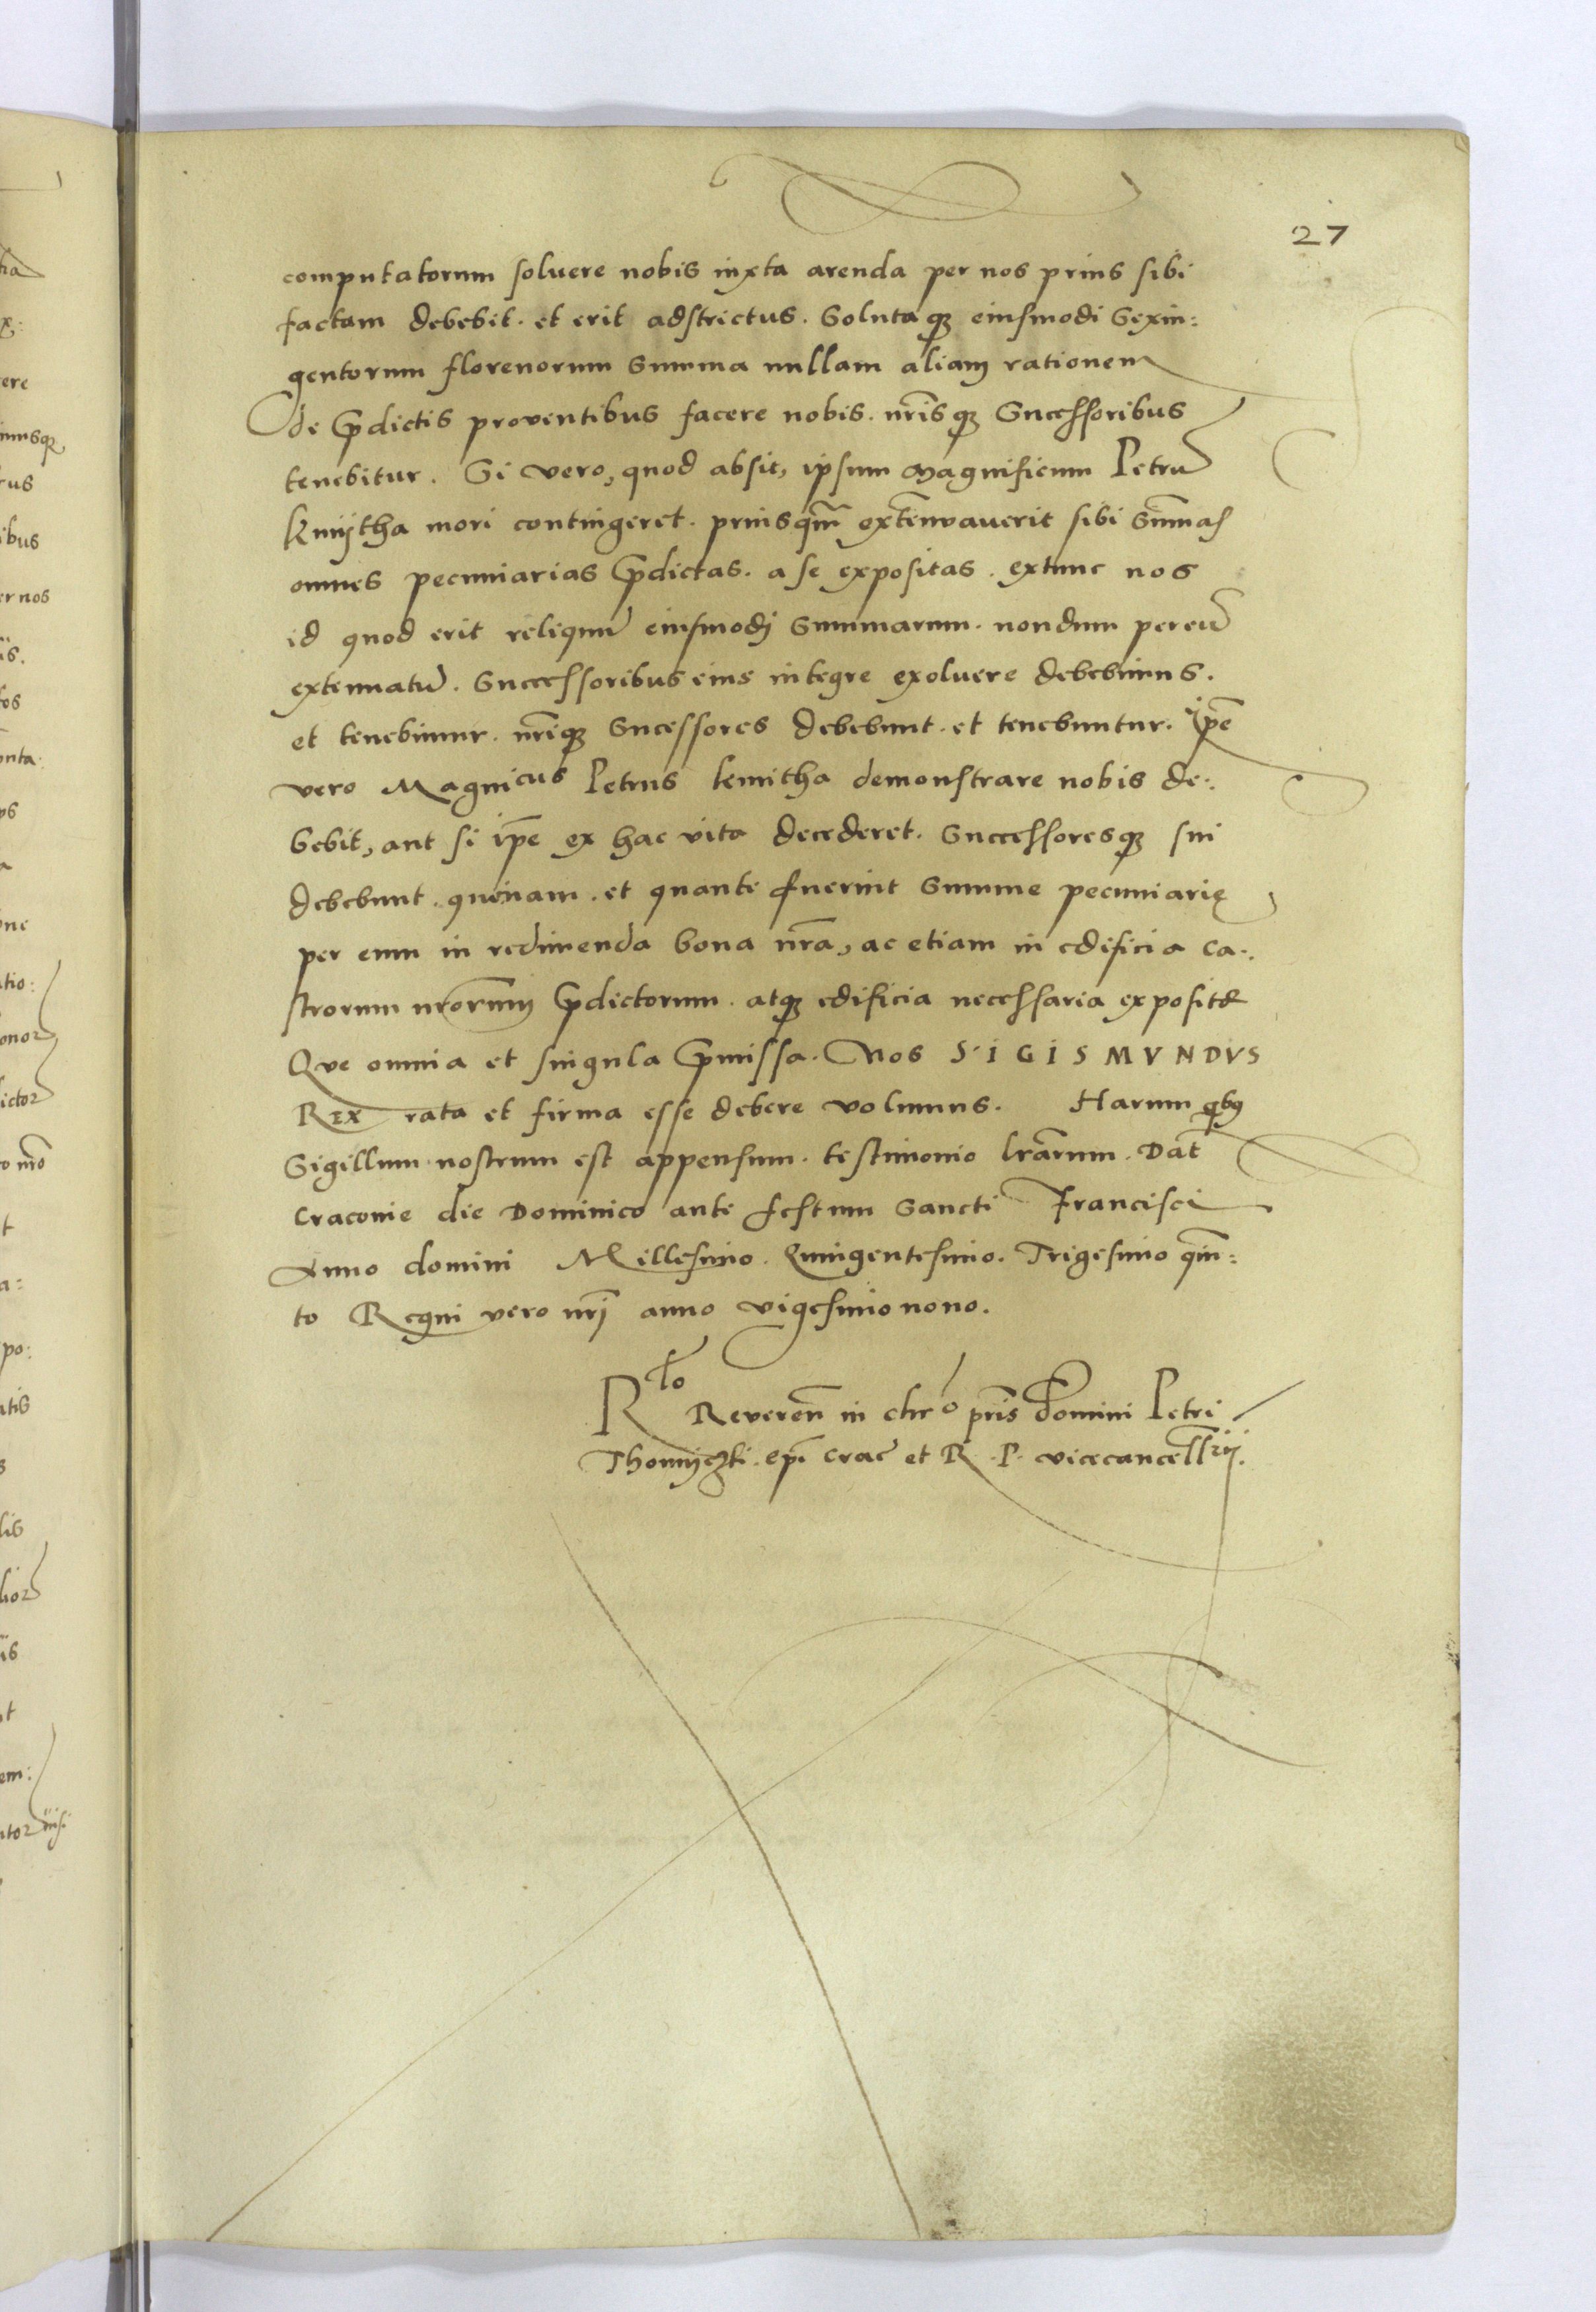 27
computatorum soluere nobis iuxta arenda per nos prius sibi
factam debebit. et erit adstrictus. Solutaqꝫ eiusmodi Sexin:
gentorum florenorum Summa nullam aliam rationem
de p̄dictis proventibus facere nobis. nr̄isqꝫ Successoribus
tenebitur. Si vero, quod absit, ipsum Magnificum Petrū
kmijtha mori contingeret. priusqm̄ extēnvauerit sibi Sūmas
omnes pecuniarias p̄dictas. a se expositas. extunc nos
id quod erit reliquū eiusmodj Summarum. nondum per eū
extenuatū. Successoribus eius integre exoluere debebimus.
et tenebimur. nr̄iqꝫ Sucessores debebunt. et tenebuntur. Ip̄e
vero Magnicus Petrus kmitha demonstrare nobis de:
bebit, aut si ip̄e ex hac vita decederet. Successoresqꝫ sui
debebunt. quenam. et quante fuerint Summe pecuniarię
per eum in redimenda bona nr̄a, ac etiam in edificia ca:
strorum nr̄orum p̄dictorum. atqꝫ edificia necessaria exposite
Que omnia et singula p̄missa. Nos SIGISMVNDVS
Rex rata et firma esse debere volumus. Harum qbꝰ
Sigillum nostrum est appensum. testimonio lr̄arum. Dat̄
Cracovie die Dominico ante festum Sancti Francisci
Anno domini Millesimo. Quingentesimo. Trigesimo qīn:
to Regni vero nr̄j anno vigesimo nono.
Rlo Reveren̄ in chr̄o pr̄is Domini Petri
Thomijczki. ep̄i Crac̄ et R. P. vicecancell̄rij.